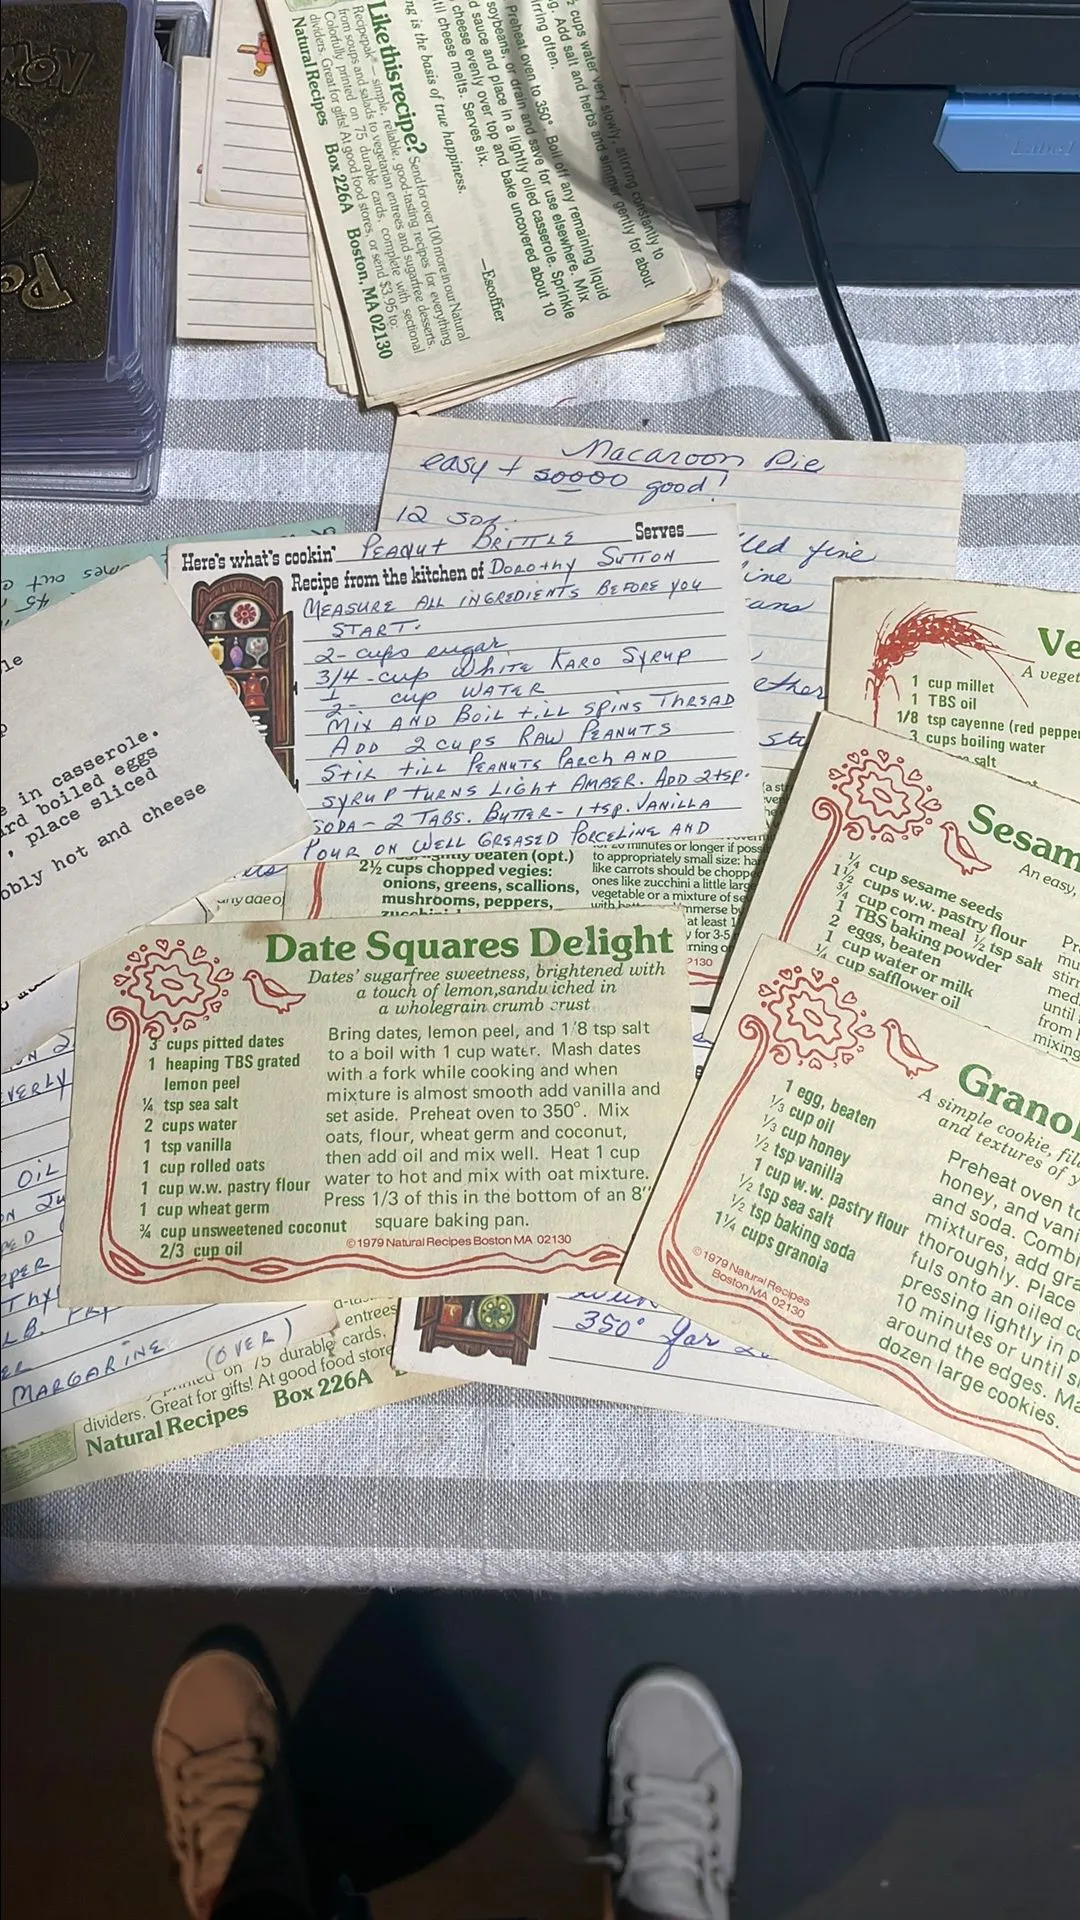 ½ cups water very slowly, stirring constantly to
Add salt and herbs and simmer gently for about
rring often.
Preheat oven to 350°. Boil off any remaining liquid
soybeans, or drain and save for use elsewhere. Mix
d sauce and place in a lightly oiled casserole. Sprinkle
cheese evenly over top and bake uncovered about 10
til cheese melts. Serves six.
ng is the basis of true happiness.
—Escoffier
Like this recipe? Send for over 100 more in our Natural
Recipepak® — simple, reliable, good-tasting recipes for everything
from soups and salads to vegetarian entrees and sugarfree desserts.
Colorfully printed on 75 durable cards, complete with sectional
dividers. Great for gifts! At good food stores, or send $3.95 to:
Natural Recipes Box 226A Boston, MA 02130
Macaroon Pie
easy + soooo good!
12
lled fine
ans
ether
Here's what's cookin' PEANUT BRITTLE Serves
Recipe from the kitchen of DOROTHY SUTTON
MEASURE ALL INGREDIENTS BEFORE YOU
START.
2- cups sugar
3/4 - cup WHITE KARO SYRUP
1/2 - cup WATER
MIX AND BOIL TILL SPINS THREAD
ADD 2 CUPS RAW PEANUTS
STIR TILL PEANUTS PARCH AND
SYRUP TURNS LIGHT AMBER. ADD 2 tsp.
SODA - 2 TABS. BUTTER - 1 tsp. VANILLA
POUR ON WELL GREASED PORCELINE AND
e in casserole.
ard boiled eggs
, place sliced
bbly hot and cheese
Ve
A veget
1 cup millet
1 TBS oil
1/8 tsp cayenne (red peppe
3 cups boiling water
salt
Sesam
An easy,
¼ cup sesame seeds
1½ cups w.w. pastry flour
¾ cup corn meal ½ tsp salt
1 TBS baking powder
2 eggs, beaten
1 cup water or milk
¼ cup safflower oil
stirr
med
until
from
mixing
beaten (opt.)
2½ cups chopped vegies:
onions, greens, scallions,
mushrooms, peppers,
minutes or longer if poss
to appropriately small size: har
like carrots should be chopped
ones like zucchini a little larg
vegetable or a mixture of se
immerse by
at least 1
for 3-5
Date Squares Delight
Dates' sugarfree sweetness, brightened with
a touch of lemon, sandwiched in
a wholegrain crumb crust
3 cups pitted dates
1 heaping TBS grated
lemon peel
¼ tsp sea salt
2 cups water
1 tsp vanilla
1 cup rolled oats
1 cup w.w. pastry flour
1 cup wheat germ
¾ cup unsweetened coconut
2/3 cup oil
Bring dates, lemon peel, and 1/8 tsp salt
to a boil with 1 cup water. Mash dates
with a fork while cooking and when
mixture is almost smooth add vanilla and
set aside. Preheat oven to 350°. Mix
oats, flour, wheat germ and coconut,
then add oil and mix well. Heat 1 cup
water to hot and mix with oat mixture.
Press 1/3 of this in the bottom of an 8"
square baking pan.
©1979 Natural Recipes Boston MA 02130
Grano
A simple cookie, fil
and textures of y
1 egg, beaten
⅓ cup oil
⅓ cup honey
½ tsp vanilla
1 cup w.w. pastry flour
½ tsp sea salt
½ tsp baking soda
1¼ cups granola
©1979 Natural Recipes
Boston MA 02130
Preheat oven to
honey, and vani
and soda. Combi
mixtures, add gra
thoroughly. Place
fuls onto an oiled co
pressing lightly in p
10 minutes or until s
around the edges. Ma
dozen large cookies.
EVERLY
OIL
LB.
MARGARINE (OVER)
350° for
entrees
on 75 durable cards,
dividers. Great for gifts! At good food store
Natural Recipes Box 226A